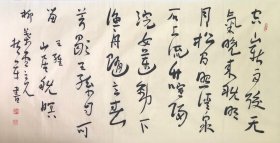 空山新雨後天
氣晚来秋明
月松间照清泉
石上流竹喧归
浣女莲动下
渔舟随意春
芳歇王孙自可
留
王维
山居秋暝
书